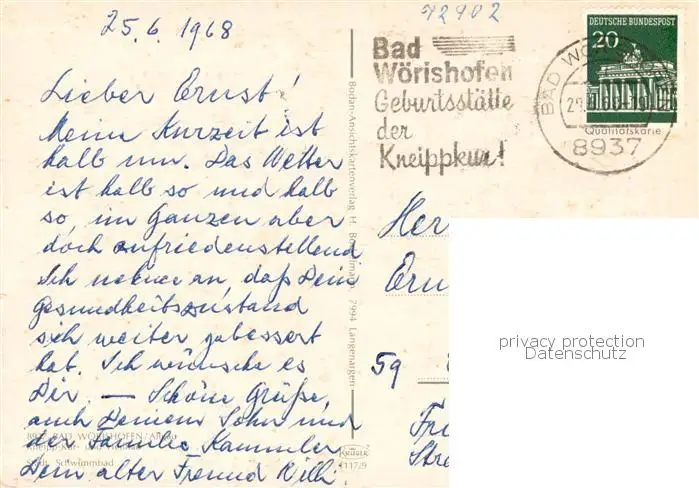 25.6.1968
72902
Lieber Ernst!
Meine Kurzeit ist
halb um. Das Wetter
ist halb so und halb
so, im Ganzen aber
doch zufriedenstellend
Ich nehme an, daß Dein
Gesundheitszustand
sich weiter gebessert
hat. Ich wünsche es
Dir. — Schöne Grüße,
auch Deinem Sohn und
der Familie Kammler
Dein alter Freund Willi
8939 BAD WÖRISHOFEN/Allgäu
Städt. Schwimmbad
Bodan-Ansichtskartenverlag H. 7994 Langenargen
KRÜGER
Bad
Wörishofen
Geburtsstätte
der
Kneippkur!
DEUTSCHE BUNDESPOST
20
BAD
8937
Qualitätskarte
Her
Ern
59
Fri
Str
privacy protection
Datenschutz